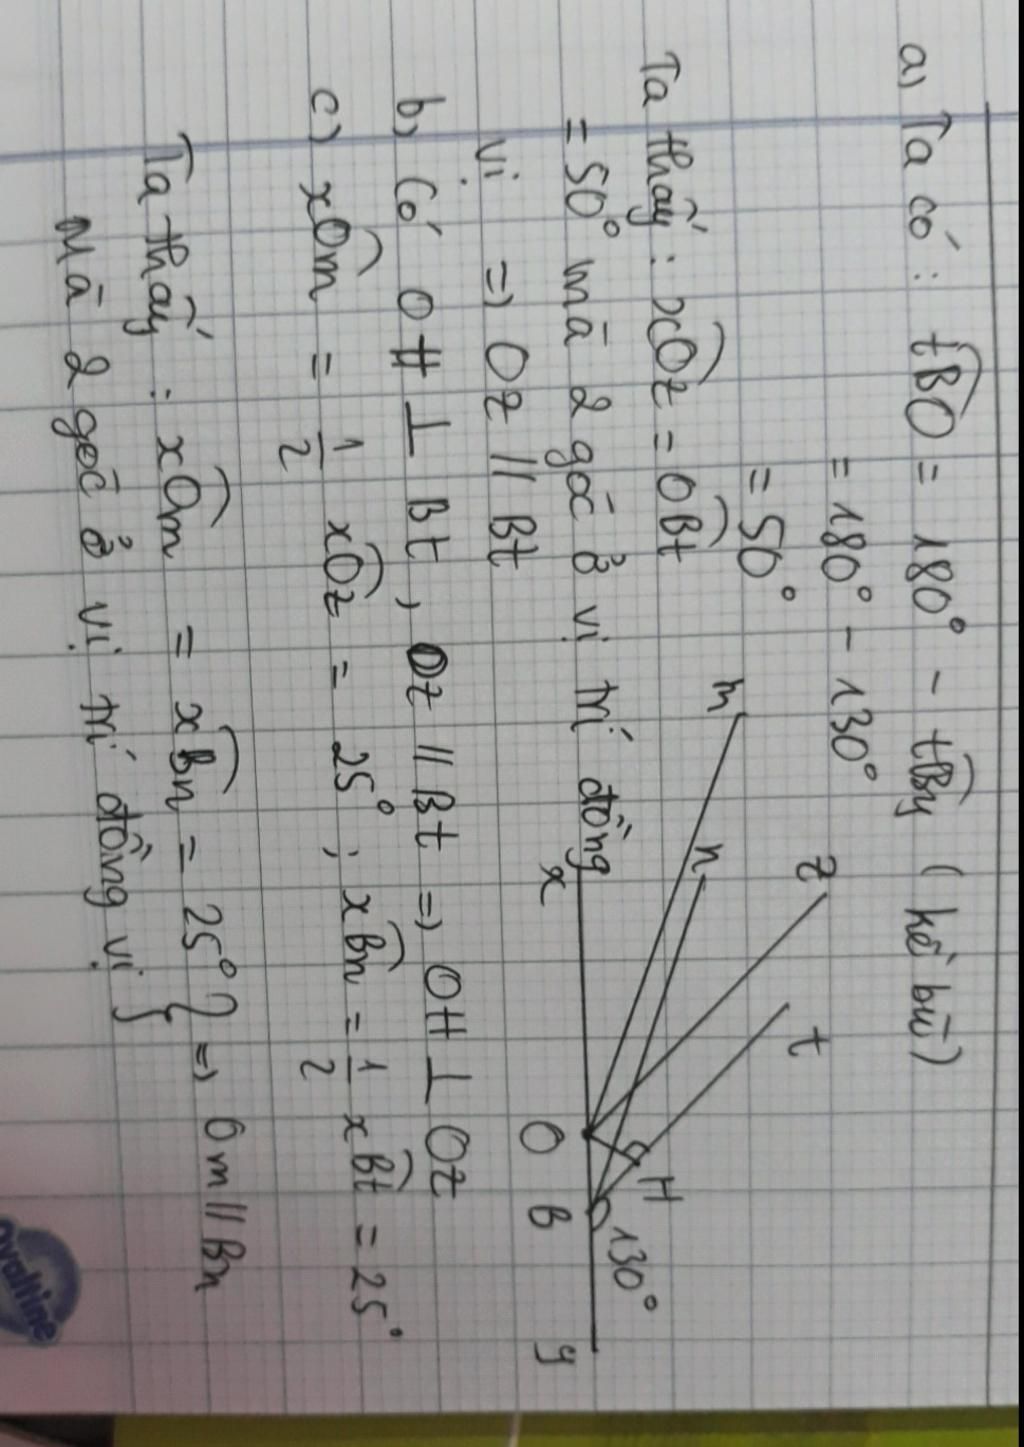 a) Ta có : tBO = 180° - tBy ( kề bù )
= 180° - 130°
= 50°
Ta thấy : xOz = OBt
= 50° mà 2 góc ở vị trí đồng
vị => Oz // Bt
b) Có OH ⊥ Bt , Oz // Bt => OH ⊥ Oz
c) xOm = 1/2 xOz = 25° ; xBn = 1/2 xBt = 25°
Ta thấy : xOm = xBn = 25° } => Om // Bn
Mà 2 góc ở vị trí đồng vị }
m
n
z
t
x
O
B
H
130°
y
Ovaltine